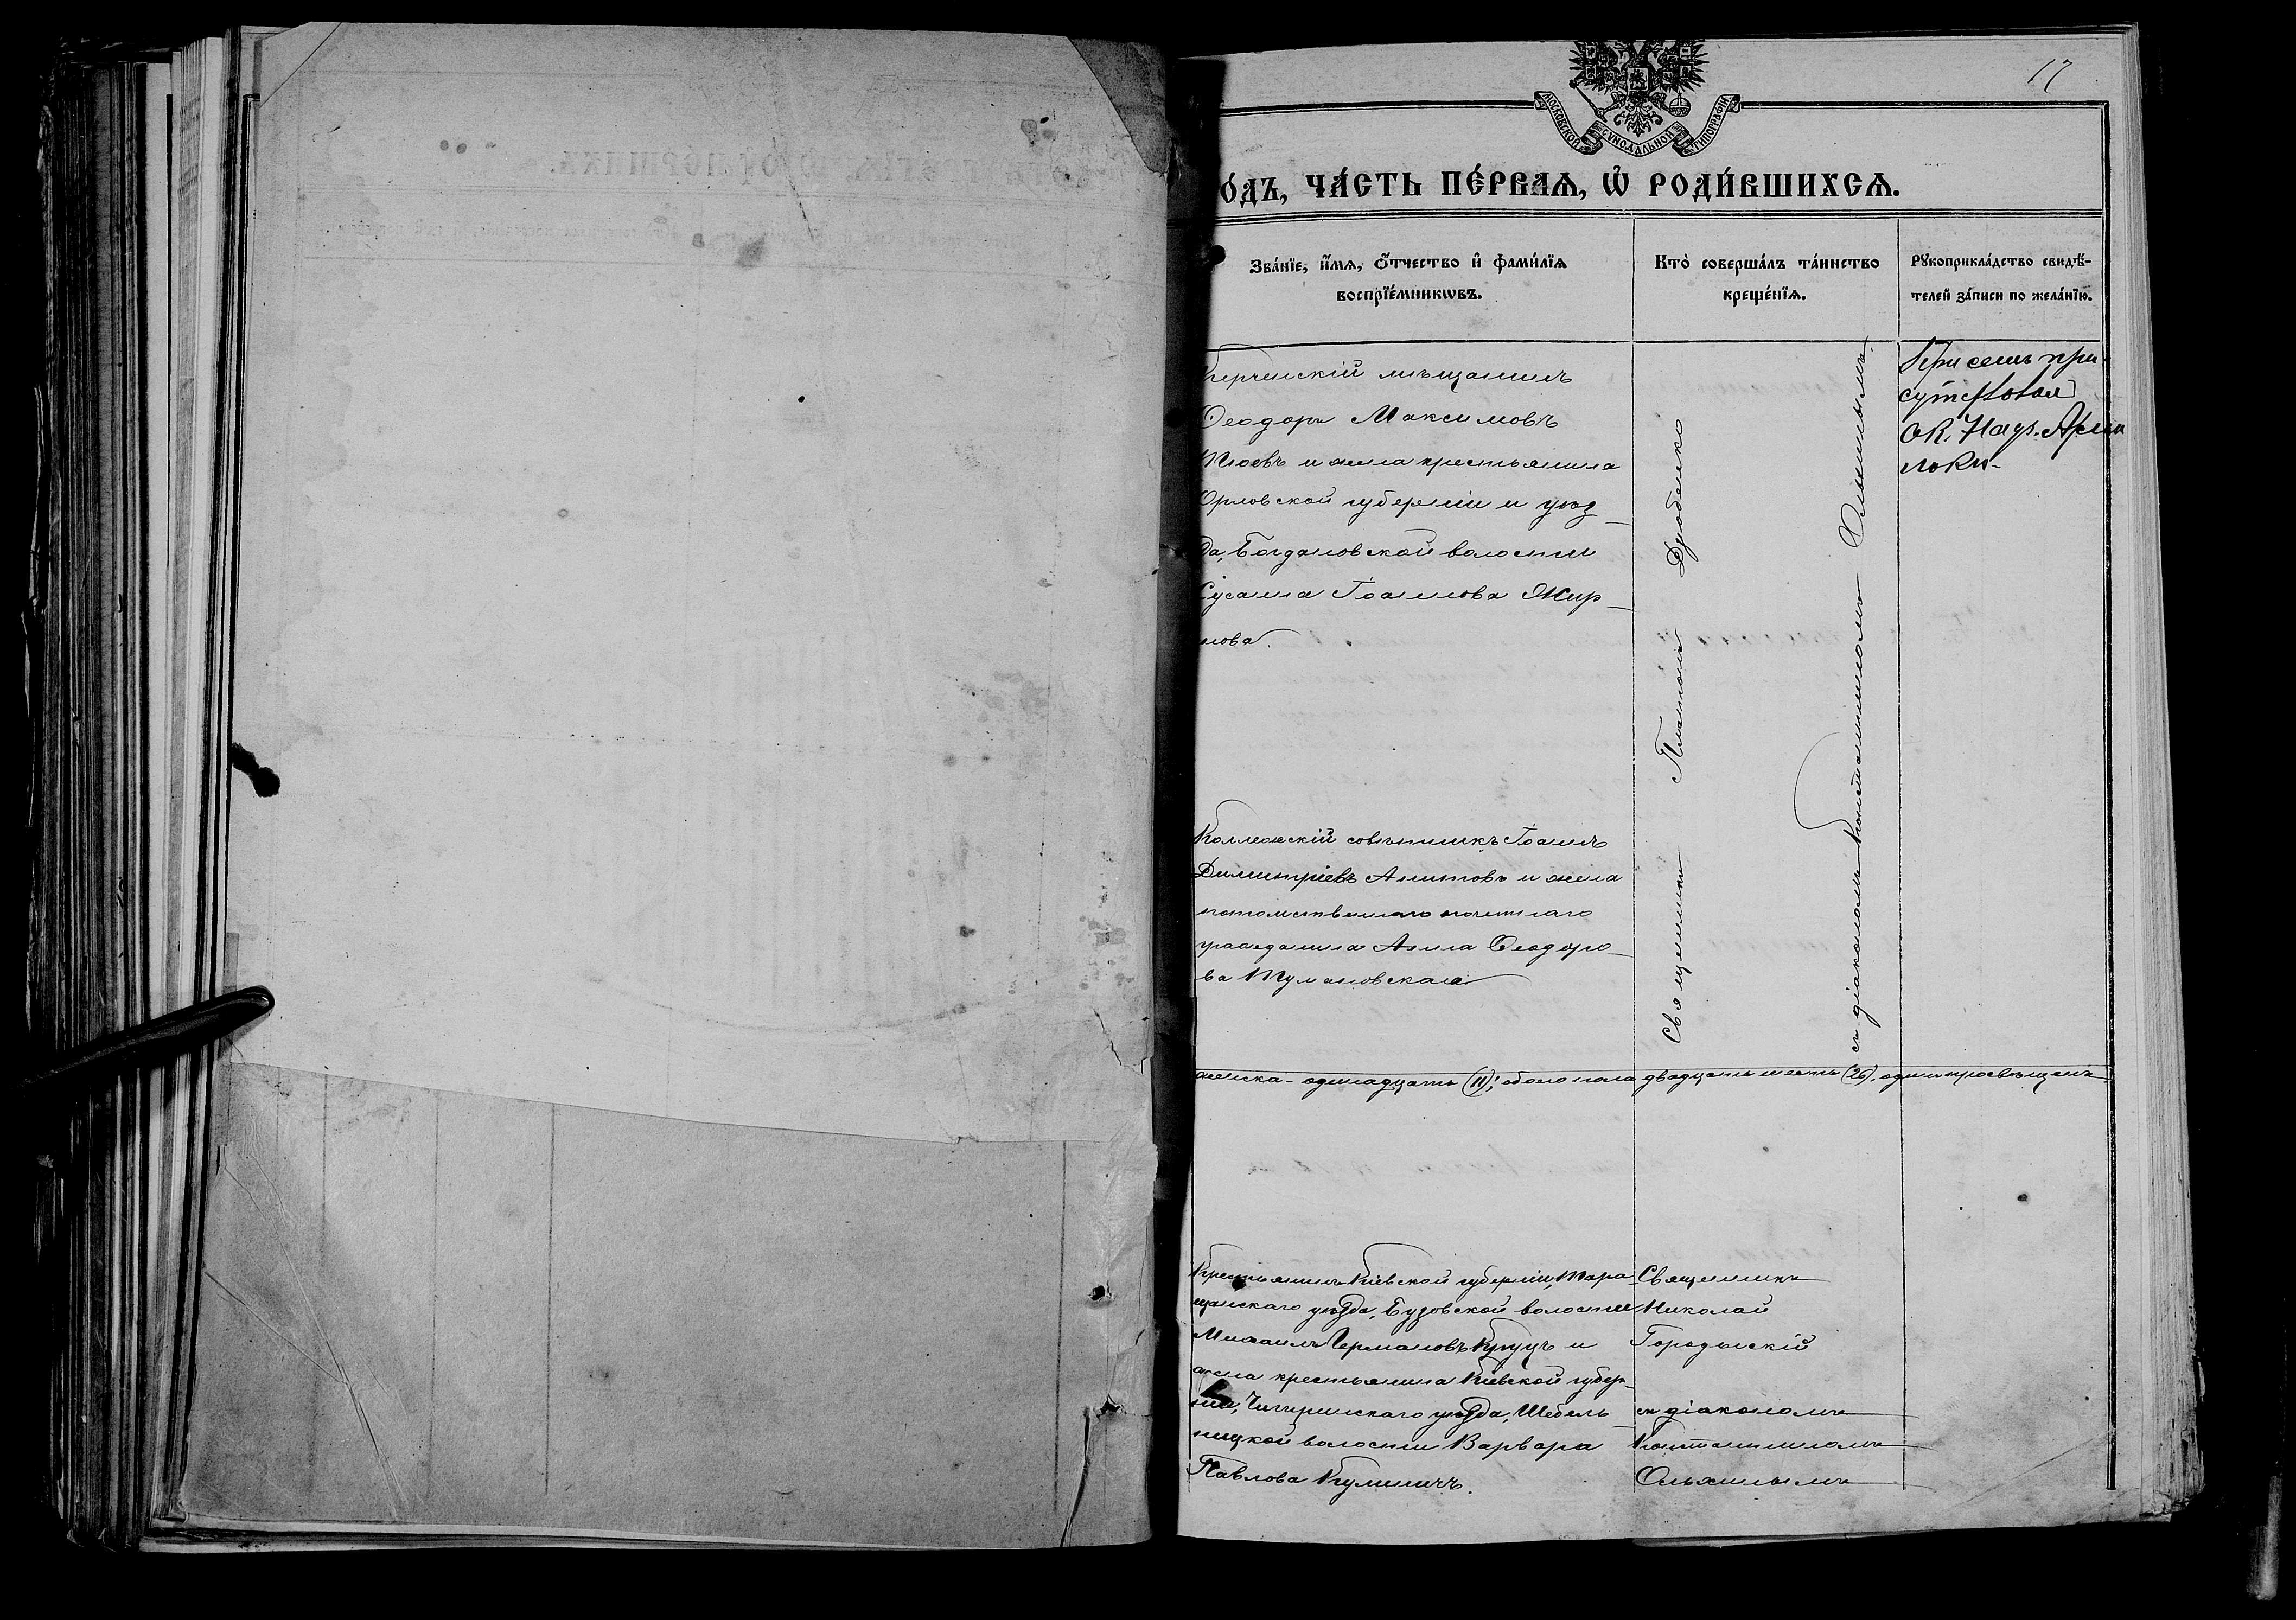 17
МОСКОВСКОЙ СѴНОДАЛЬНОЙ ТИПОГРАФІИ
О́ДЪ, ЧА́СТЬ ПЕ́РВАѦ, Ѡ҆ РОДИ́ВШИХСѦ.
Зва́нїе, и҆́мѧ, ѻ҆́тчество и҆ фами́лїѧ
воспрїе́мникѡвъ.
Кто̀ соверша́лъ та́инство
креще́нїѧ.
Рꙋкоприкла́дство свидѣ́-
телей за́писи по жела́нїю.
Керченскій мѣщанинъ
Ѳеодоръ Максимовъ
и жена крестьянина
Орловской губерніи и уѣз_
да, Богдановской волости
Сусанна Іоаннова Жир_
нова.
Коллежскій совѣтникъ Іоаннъ
Димитріевъ Антовъ и жена
потомственнаго почетнаго
гражданина Анна Ѳеодоро_
ва Тумановская
Священникъ Платонъ
съ діакономъ Константиномъ
При семъ при-
сутствовал
ок. Надз.
женска - одинадцать (11); обоего пола двадцать шесть (26). одинъ просвѣщенъ
Крестьянинъ Кіевской губерніи, Тара
щанскаго уѣзда, Бузовской волости
Михаилъ Германовъ и
жена крестьянина Кіевской губер_
ніи, Чигиринскаго уѣзда, Шебель_
ницкой волости Варвара
Павлова Кулиничъ.
Священникъ
Николай
Городыскій
съ діакономъ
Константиномъ